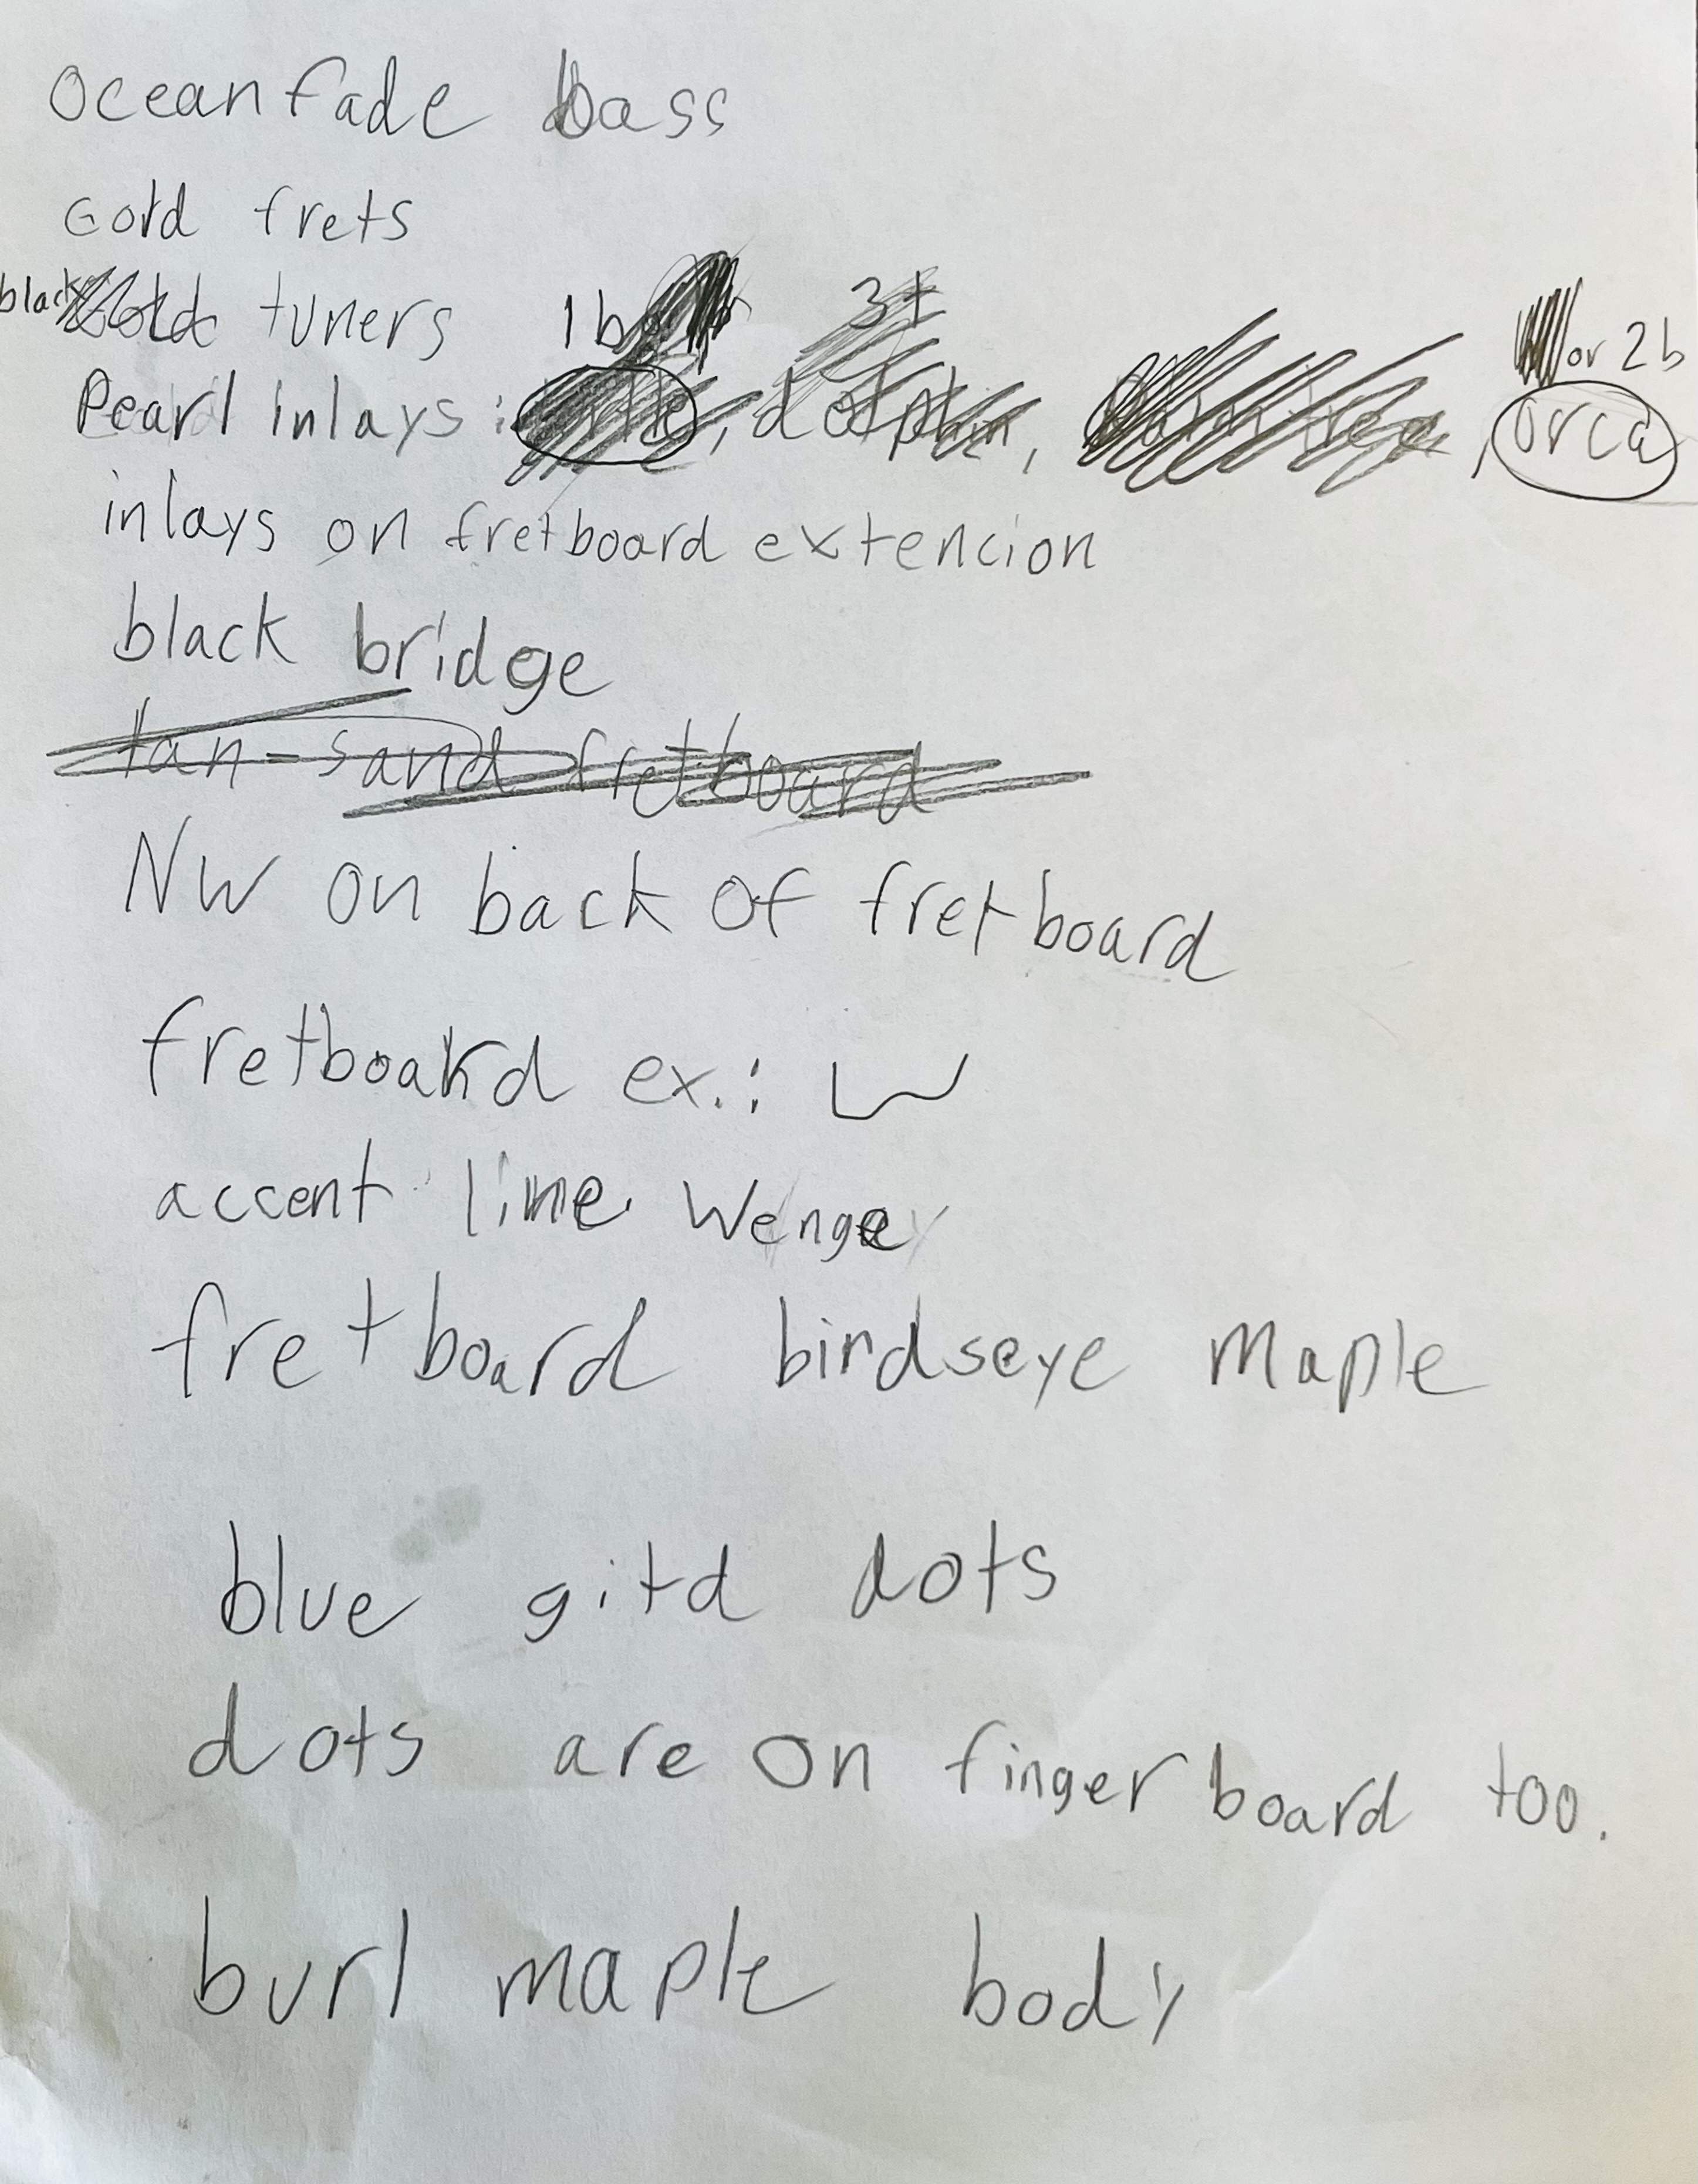 Oceanfade bass
Gold frets
black tuners 1b 3t or 2b
Pearl inlays: dolphin, , orca
inlays on fretboard extencion
black bridge
tan-sand fretboard
NW on back of fretboard
fretboard ex.:
accent line Wenge
fretboard birdseye Maple
blue gitd dots
dots are on fingerboard too.
burl maple body